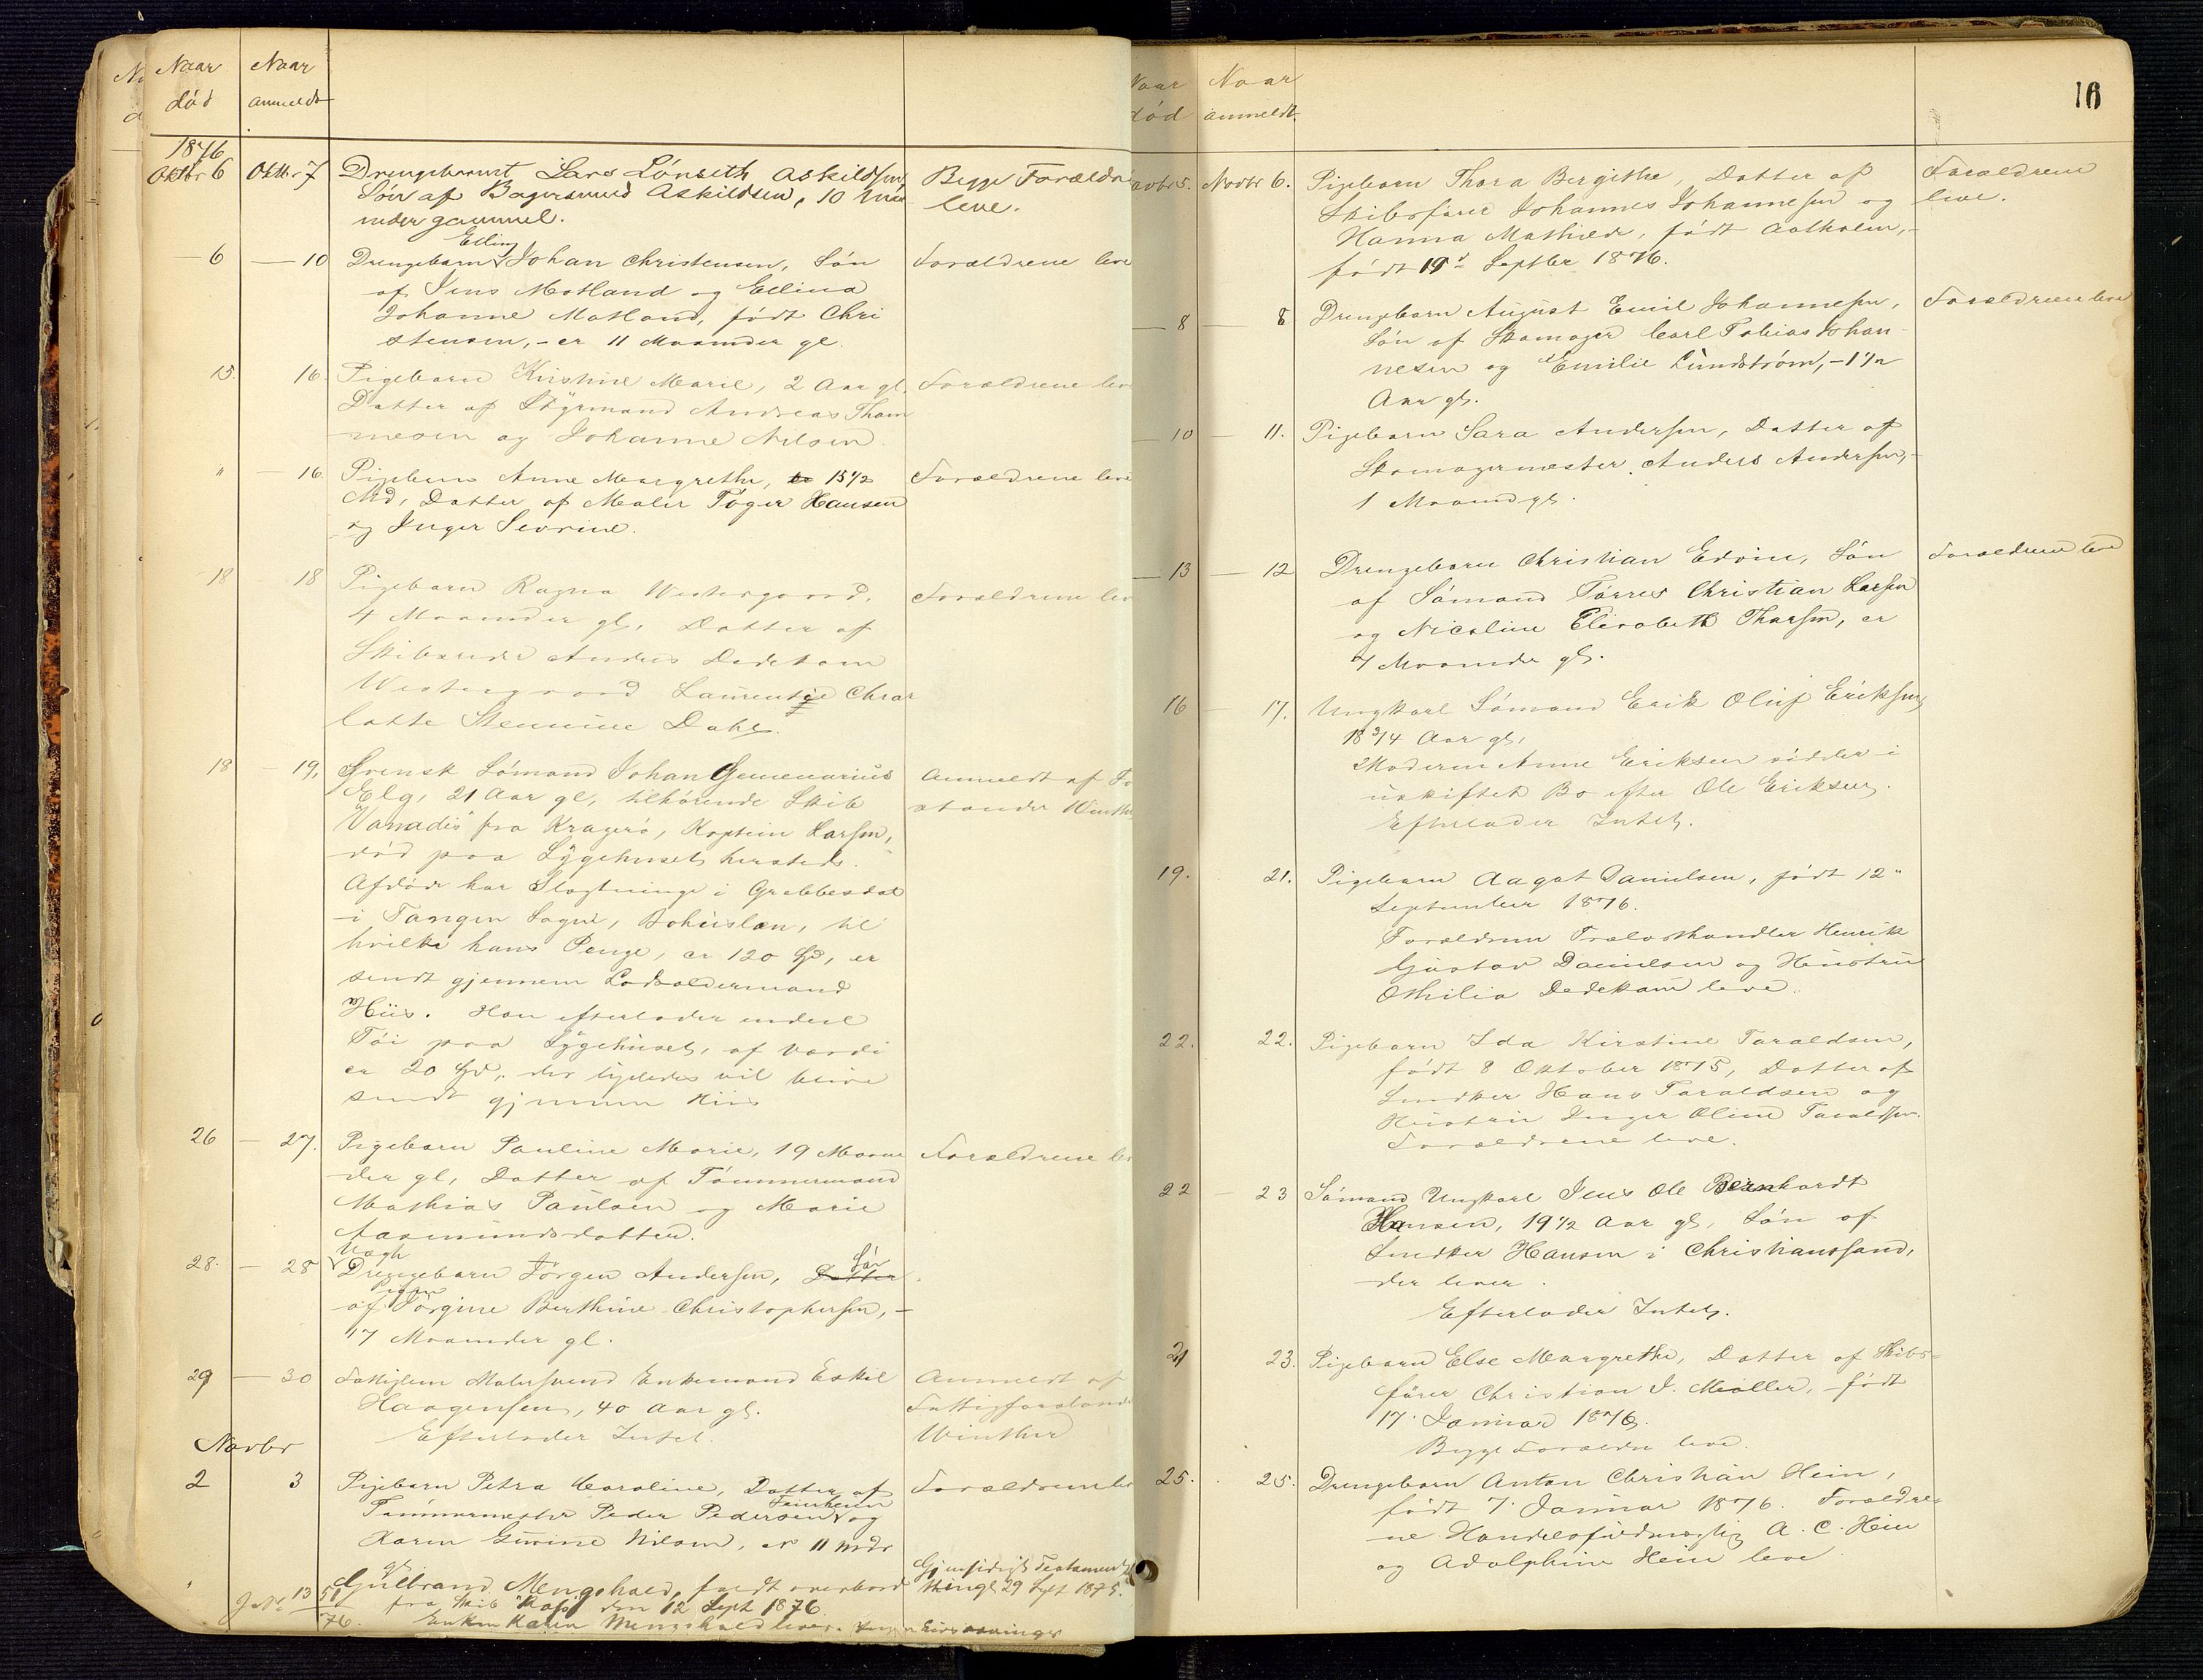 Naar Naar
død anmeldt
1876
Oktbr 6 Oktbr 7 Drengebarnet Lars Lønseth Askildsen, Begge Forældre
Søn af Askildsen, 10 Maa leve.
neder gammel.
Elling
— 6 — 10 Drengebarn Johan Christensen, Søn Forældrene leve
af Jens Motland og Ellina
Johanne Motland, født Chri
stensen, - er 11 Maaneder gl.
15. 16. Pigebarn Kirstine Marie, 2 Aar gl. Forældrene leve
Datter af Styrmand Andreas Thom
mesen og Johanne Nilsen
" — 16. Pigebarn Anne Margrethe, 15 1/2 Forældrene leve
Md, Datter af Maler Tøger Hansen
og Inger Sevrine.
18 18 Pigebarn Ragna Westergaard,
4 Maaneder gl, Datter af Forældrene lev
Skibsreder Andreas Dedekam
Westergaard Laurentze Char
lotte Stennine Dahl.
18 — 19. Svensk Sømand Johan Anmeldt af Fo
Elg, 21 Aar gl, tilhørende Skib stander Winther
"Vanadis" fra Kragerø, Kaptein Larsen,
død paa Sygehuset hersteds.
Afdøde har Slægtninge i Grebbestad
i Tangen Sogn, Bohuslæn, til
hvilke hans Penge, ca 120 Spd, er
sendt gjennem Lodsoldermand
Hiis. Han efterlader endeel
Tøi paa Sygehuset, af Værdi
ca 20 Spd, der ligeledes vil blive
sendt gjennem Hiis
26 — 27. Pigebarn Pauline Marie, 19 Maane Forældrene lev
der gl, Datter af Tømmermand
Mathias Paulsen og Marie
Aasmundsdatter.
Uægte
28. — 28 Drengebarn Jørgen Andersen, Datter Søn
Pigen
af Jørgine Berthine Christophersen, -
17 Maaneder gl.
29 — 30 Fattiglem Malersvend Enkemand Eskil Anmeldt af
Haagensen, 40 Aar gl. Fattigforstander
Efterlader Intet. Winther
Novbr
2 3 Pigebarn Petra Caroline, Datter af Forældrene lev
Tømmermester Peder Pedersen og
Karen Gurine Nilsen, er 11 Mdr
gl.
Gulbrand Mengshold, faldt overbord Gjensidigt Testament
J. No. 1351/76. fra Skib den 12 Sept 1876 thingl. 29 Sept 1875.
Enken Karen Mengshold lever. Ingen Livsarvinger
16
Naar Naar
død anmeldt.
Novbr 5. Novbr 6. Pigebarn Thora Bergithe, Datter af Forældrene
Skibsfører Johannes Johannesen og leve.
Hanna Mathilde, født Aalholm, -
født 19d Septbr 1876.
— 8 — 8 Drengebarn August Emil Johannesen, Forældrene leve
Søn af Skomager Carl Tobias Johan-
nesen og Emilie Lundstrøm, - 1 1/2
Aar gl.
— 10 — 11. Pigebarn Sara Andersen, Datter af
Skomagermester Anders Andersen, -
1 Maaned gl.
— 13 — 12 Drengebarn Christian Edvin, Søn Forældrene leve
af Sømand Tørres Christian Larsen
og Nicoline Elisabeth Tharsen, er
7 Maaneder gl.
16 — 17. Ungkarl Sømand Erik Oluf Eriksen,
18 3/4 Aar gl,
Moderen Anne Eriksen sidder i
uskiftet Bo efter Ole Eriksen.
Efterlader Intet.
19. 21. Pigebarn Aagot Danielsen, født 12"
September 1876.
Forældrene Trælasthandler Henrik
Gustav Danielsen og Hustru
Othilia Dedekam leve.
22. 22. Pigebarn Ida Kirstine Taraldsen,
født 8 Oktober 1875, Datter af
Snedker Hans Taraldsen og
Hustru Inger Oline Taraldsen.
Forældrene leve.
22 — 23 Sømand Ungkarl Jens Ole Bernhardt
Hansen, 19 1/2 Aar gl, Søn af
Snedker Hansen i Christianssand,
der lever.
Efterlader Intet.
21 23. Pigebarn Else Margrethe, Datter af Skibs-
fører Christian J. Møller, - født
17. Januar 1876.
Begge Forældre leve.
25. 25. Drengebarn Anton Christian Hein,
født 7. Januar 1876. Forældre-
ne Handelsfuldmægtig A. C. Hein
og Adolphine Hein leve